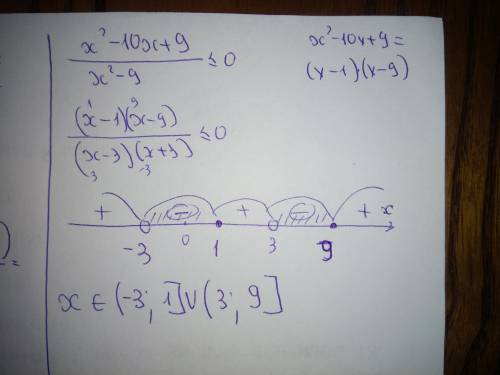 x² - 10x + 9 / x² - 9 ≤ 0
x² - 10x + 9 =
(x - 1)(x - 9)
1 9
(x - 1)(x - 9) / (x - 3)(x + 3) ≤ 0
3 -3
+ - + - + x
-3 0 1 3 9
x ∈ (-3; 1] ∪ (3; 9]